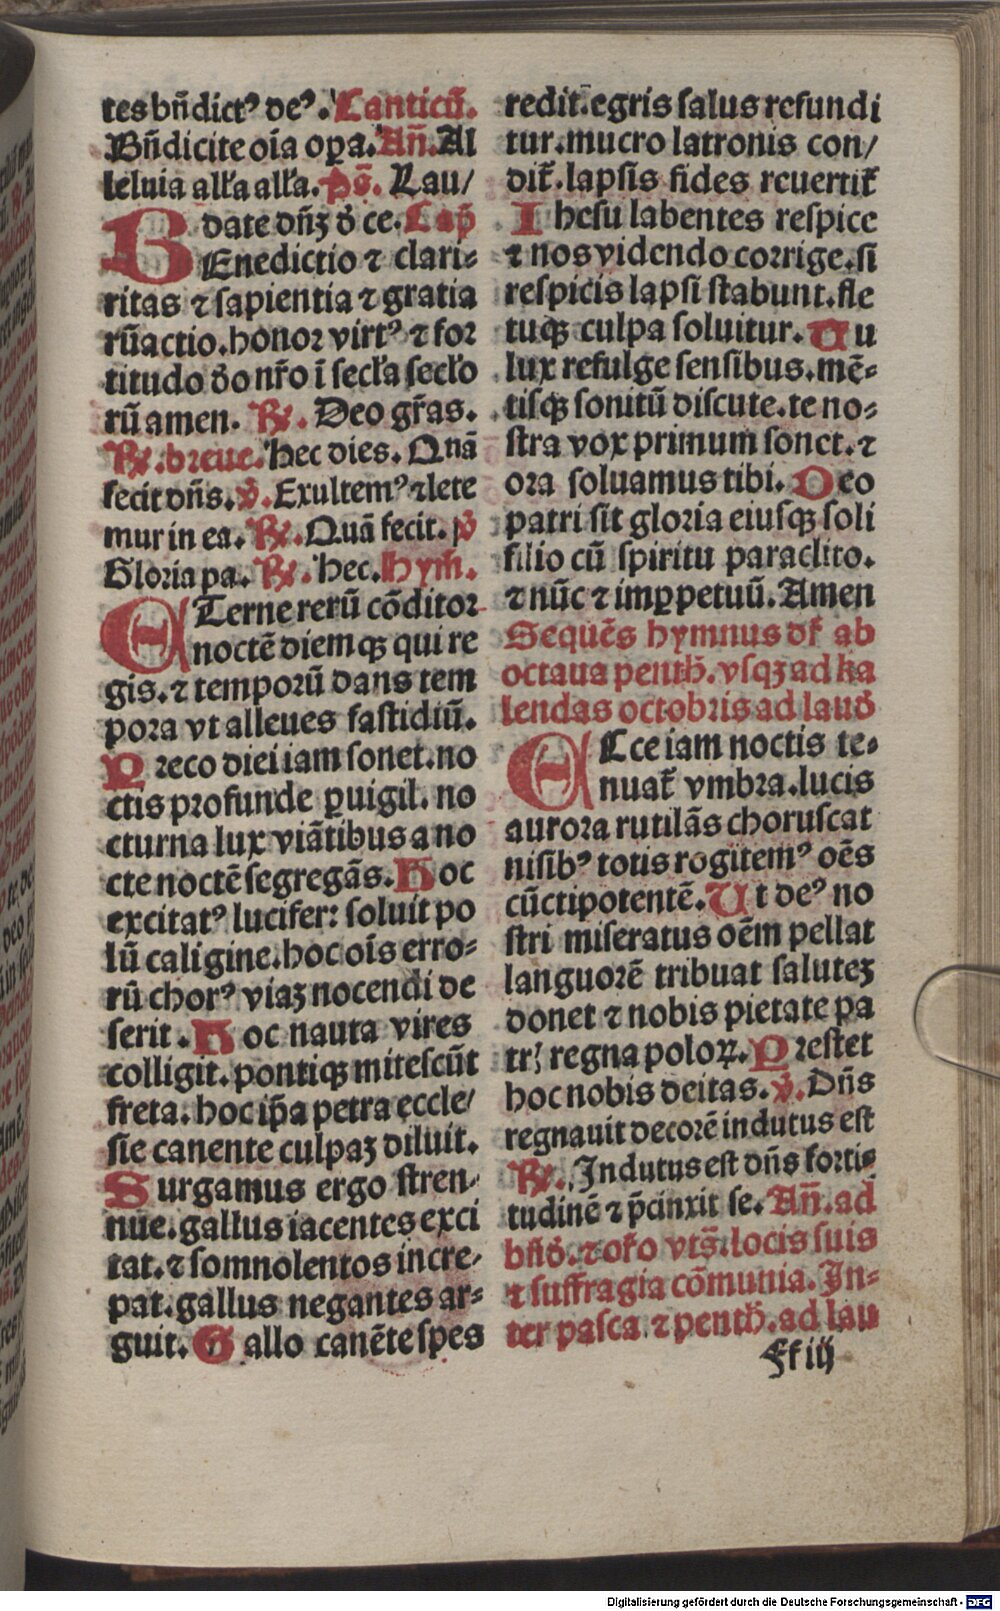 tes bn̄dictꝰ deꝰ. Canticū.
Bn̄dicite oīa oꝑa. An̄. Al
leluia all'a all'a. ps̄. Lau/
date dn̄ꝫ d̄ ce. Cap̄
BEnedictio ⁊ clari⸗
ritas ⁊ sapientia ⁊ gratia
rū actio. honor virtꝰ ⁊ for
titudo d̄o nr̄o ī secl'a secl'o
rū amen. ℟. Deo gr̄as.
℟. breue. Hec dies. Quā
fecit dn̄s. ℣. Exultemꝰ ⁊ lete
mur in ea. ℟. Quā fecit. ℣
Gloria pa. ℟. Hec. Hym̄.
ETerne rerū cōditor
noctē diemqꝫ qui re
gis. ⁊ temporū dans tem
pora vt alleues fastidiū.
Preco diei iam sonet. no
ctis profunde ꝑuigil. no
cturna lux viātibus a no
cte noctē segregās. Hoc
excitatꝰ lucifer: soluit po
lū caligine. hoc oīs erro⸗
rū chorꝰ viaꝫ nocendi de
serit. Hoc nauta vires
colligit. pontiqꝫ mitescūt
freta. hoc ip̄a petra eccle/
sie canente culpaꝫ diluit.
Surgamus ergo stren⸗
nue. gallus iacentes exci
tat. ⁊ somnolentos incre⸗
pat. gallus negantes ar⸗
guit. Gallo canēte spes
redit. egris salus refundi
tur. mucro latronis con/
dit̄. lapsis fides reuertit̄
Ihesu labentes respice
⁊ nos videndo corrige. si
respicis lapsi stabunt. fle
tuqꝫ culpa soluitur. Tu
lux refulge sensibus. mē⸗
tisqꝫ sonitū discute. te no⸗
stra vox primum sonet. ⁊
ora soluamus tibi. Deo
patri sit gloria eiusqꝫ soli
filio cū spiritu paraclito.
⁊ nūc ⁊ imꝑpetuū. Amen
Sequēs hymnus dr̄ ab
octaua penth̄. vsqꝫ ad ka
lendas octobris ad laud̄
ECce iam noctis te⸗
nuat̄ vmbra. lucis
aurora rutilās choruscat
nisibꝰ totis rogitemꝰ oēs
cūctipotentē. Ut deꝰ no
stri miseratus oēm pellat
languorē tribuat saluteꝫ
donet ⁊ nobis pietate pa
trꝭ regna poloꝝ. Prestet
hoc nobis deitas. ℣. Dn̄s
regnauit decorē indutus est
℟. Indutus est dn̄s forti⸗
tudinē ⁊ p̄cinxit se. An̄. ad
bn̄d̄. ⁊ or̄o vts̄. locis suis
⁊ suffragia cōmunia. In⸗
ter pasca ⁊ penth̄. ad lau
Ff iij
Digitalisierung gefördert durch die Deutsche Forschungsgemeinschaft - DFG